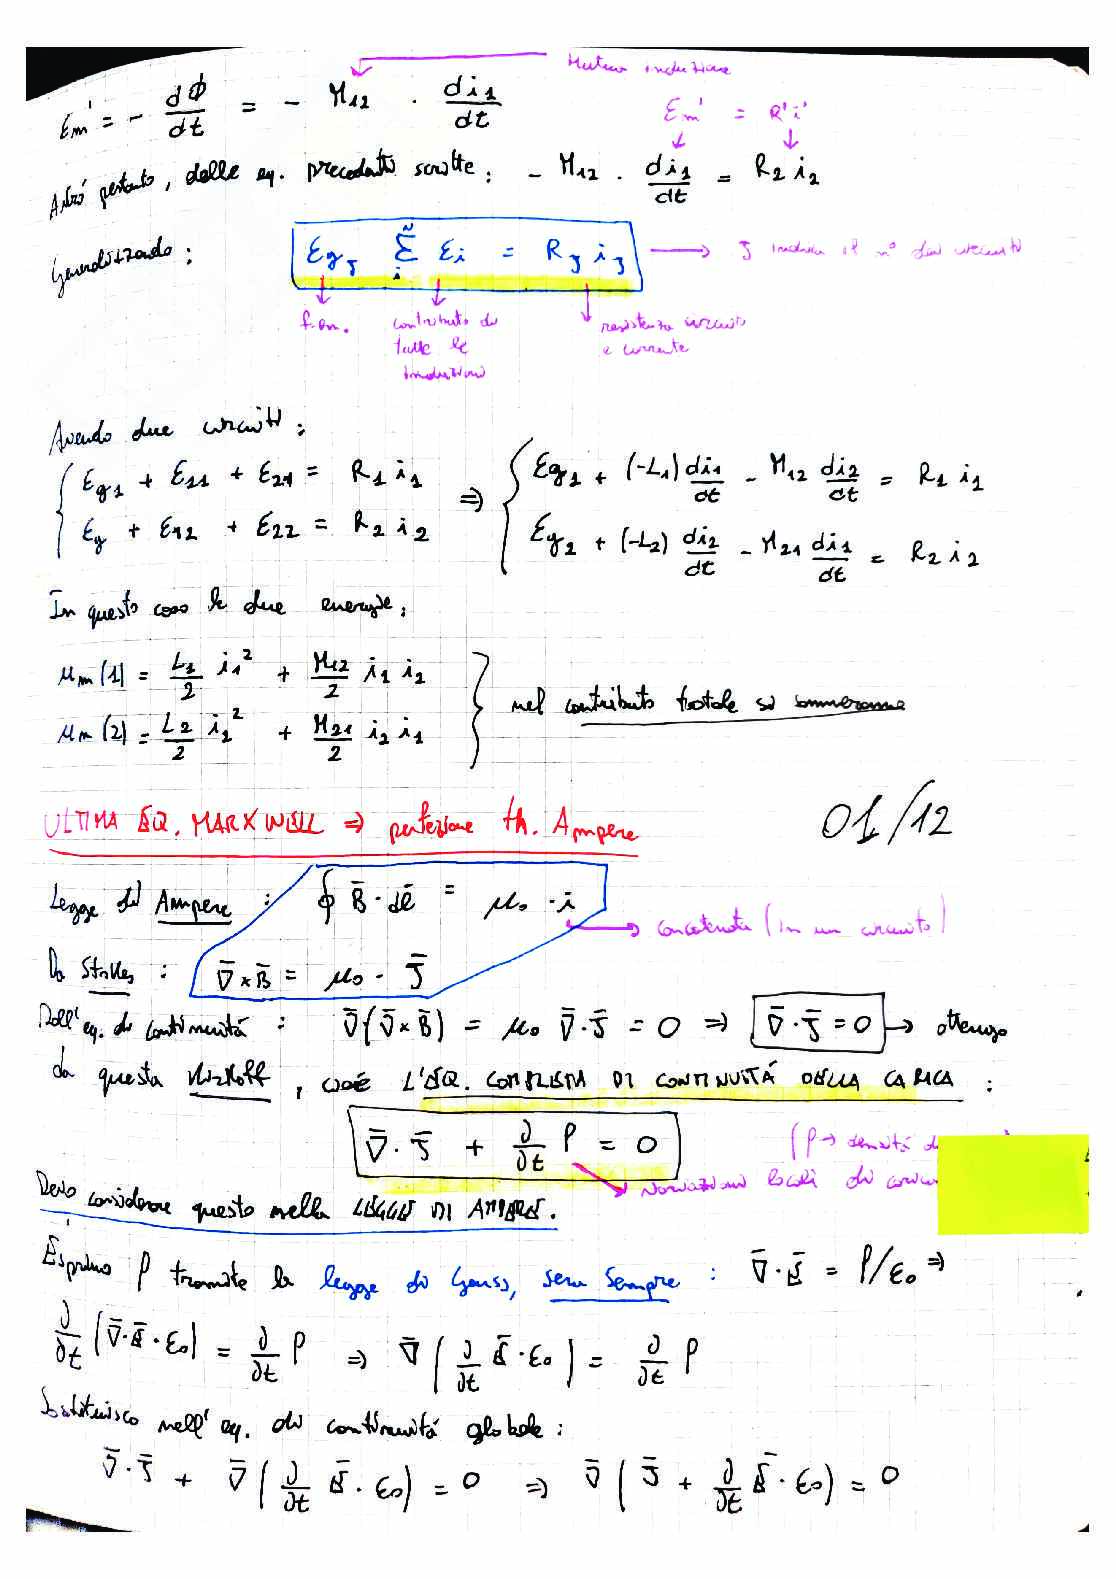 Mutua induzione
Em' = - dΦ/dt = - M12 · di1/dt
Em' = R'i'
Avrò pertanto, dalle eq. precedenti scritte: - M12 · di1/dt = R2 i2
Generalizzando: Egj Σi Ei = Rj ij → J indica il n° dei circuiti
f.em. contributo di resistenza circuito
tutte le e corrente
induzioni
Avendo due circuiti:
Eg1 + E11 + E21 = R1 i1 ⇒ Eg1 + (-L1) di1/dt - M12 di2/dt = R1 i1
Eg + E12 + E22 = R2 i2 Eg2 + (-L2) di2/dt - M21 di1/dt = R2 i2
In questo caso le due energie:
μm(1) = L1/2 i1² + M12/2 i1 i2
nel contributo totale si sommeranno
μm(2) = L2/2 i2² + M21/2 i2 i1
ULTIMA EQ. MARXWELL ⇒ perfezione th. Ampere 01/12
Legge di Ampere: ∮ B̄·dl̄ = μ0 · i → Concatenata (in un circuito)
Da Stokes: ∇̄×B̄ = μ0 · J̄
Dall'eq. di continuità: ∇̄(∇̄×B̄) = μ0 ∇̄·J̄ = 0 ⇒ ∇̄·J̄ = 0 → ottengo
da questa Kirkoff, cioè L'EQ. COMPLETA DI CONTINUITÁ DELLA CARICA:
∇̄·J̄ + ∂/∂t ρ = 0 (ρ → densità d
Variazioni locali di
Devo considerare questo nella LEGGE DI AMPERE.
Esprimo ρ tramite la legge di Gauss, sera sempre: ∇̄·Ē = ρ/ε0 ⇒
∂/∂t (∇̄·Ē·ε0) = ∂/∂t ρ ⇒ ∇̄(∂/∂t Ē·ε0) = ∂/∂t ρ
Sostituisco nell'eq. di continuità globale:
∇̄·J̄ + ∇̄(∂/∂t Ē·ε0) = 0 ⇒ ∇̄(J̄ + ∂/∂t Ē·ε0) = 0